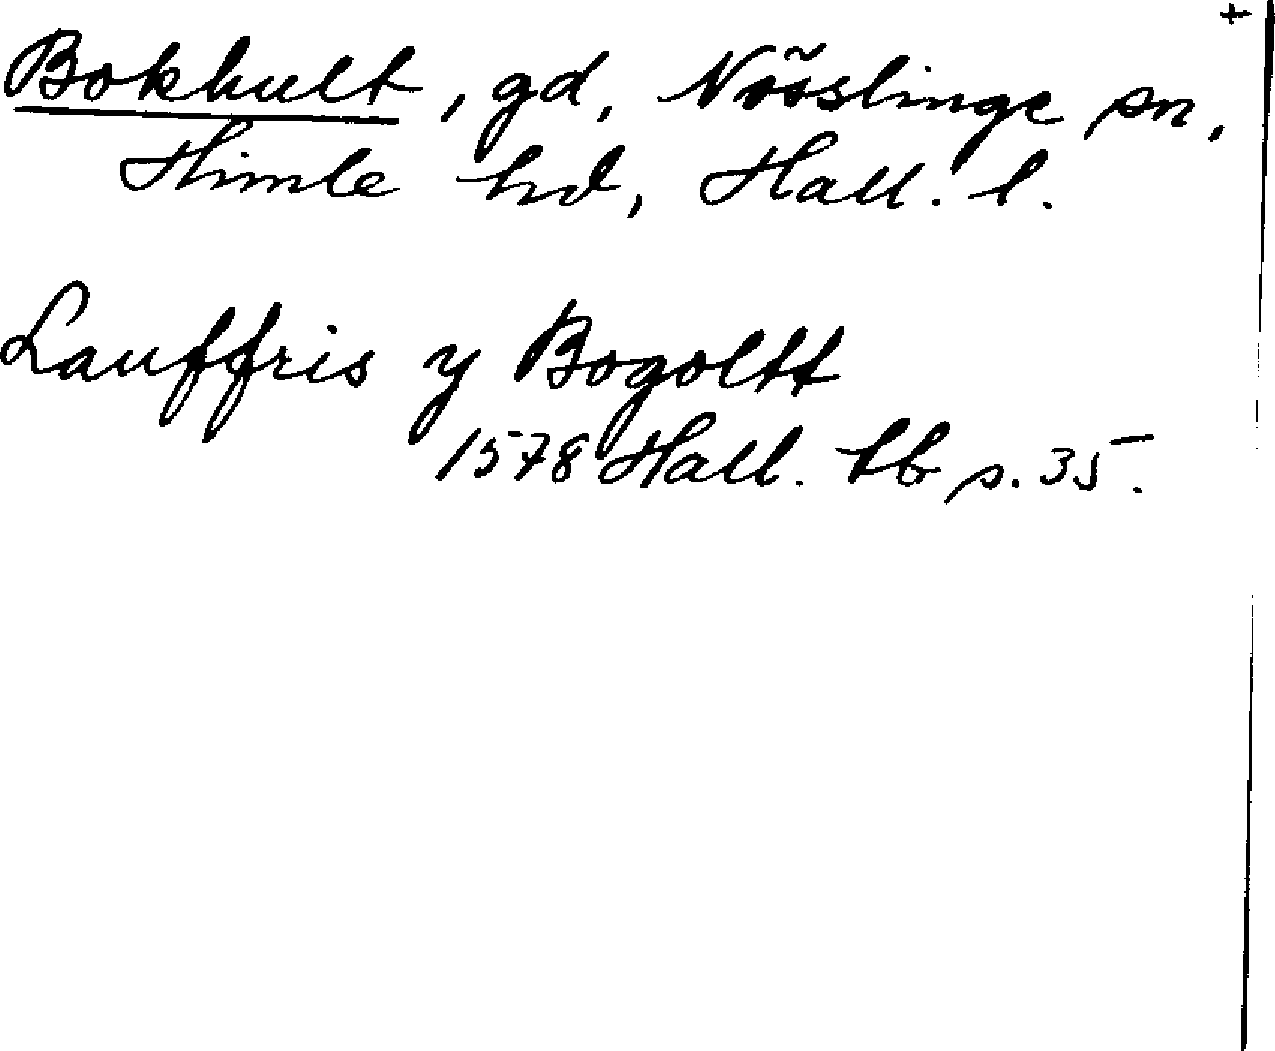 +
Bokhult, gd, Nösslinge sn,
Himle hd, Hall. l.
Lauffris y Bogoltt
1578 Hall. lb s. 35.